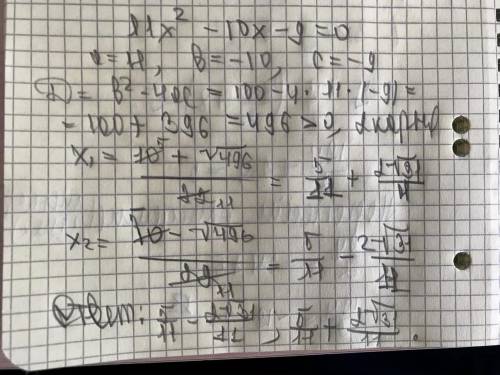 11x² - 10x - 9 = 0
a = 11, b = -10, c = -9
D = b² - 4ac = 100 - 4 · 11 · (-9) =
= 100 + 396 = 496 > 0, 2 корня
x₁ = (10 + √496)/22 = 5/11 + 2√31/11
x₂ = (10 - √496)/22 = 5/11 - 2√31/11
Ответ: 5/11 - 2√31/11, 5/11 + 2√31/11.